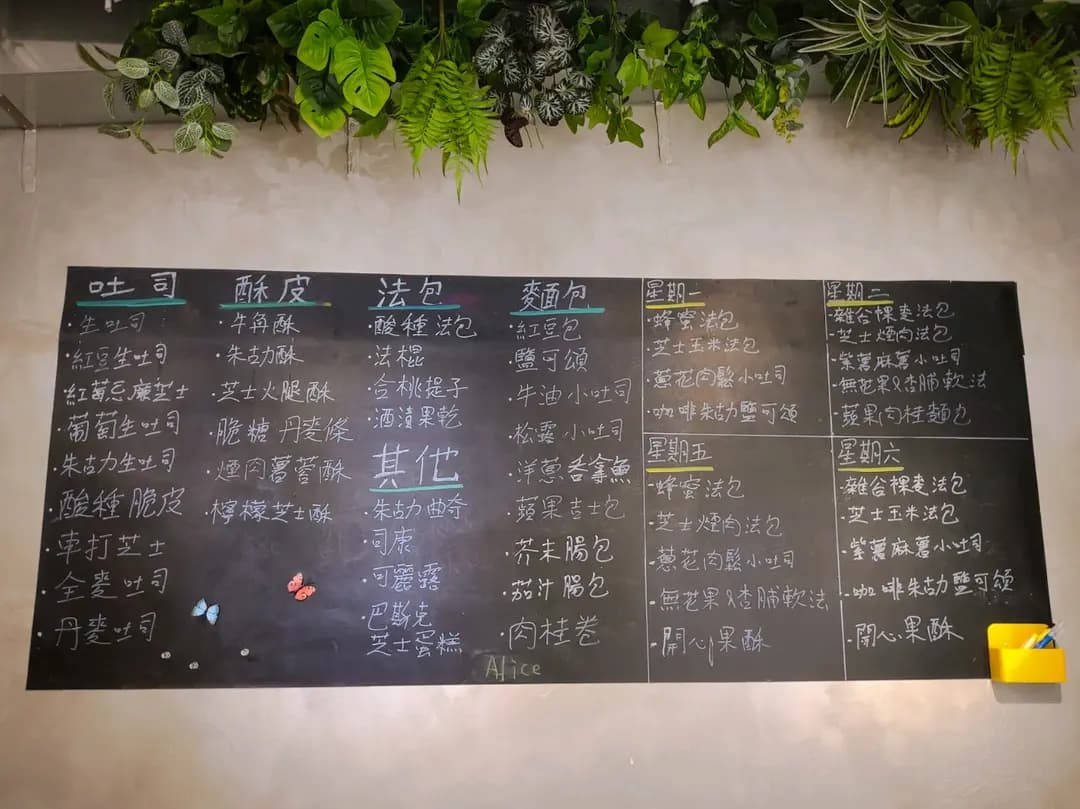 吐司
·生吐司
·紅豆生吐司
紅莓忌廉芝士
·葡萄生吐司
·朱古力生吐司
·酸種脆皮
·車打芝士
·全麥吐司
·丹麥吐司
酥皮
·牛角酥
·朱古力酥
·芝士火腿酥
·脆糖丹麥條
·煙肉薯蓉酥
·檸檬芝士酥
法包
·酸種法包
·法棍
·合桃提子
·酒漬果乾
其他
·朱古力曲奇
·司康
·可麗露
·巴斯克
芝士蛋糕
麵包
·紅豆包
鹽可頌
·牛油小吐司
·松露小吐司
·洋蔥吞拿魚
·蘋果吉士包
·芥末腸包
·茄汁腸包
·肉桂卷
Alice
星期一
·蜂蜜法包
·芝士玉米法包
·蔥花肉鬆小吐司
·咖啡朱古力鹽可頌
星期二
·雜合裸麥法包
·芝士煙肉法包
·紫薯麻薯小吐司
·無花果&杏脯軟法
·蘋果肉桂麵包
星期五
·蜂蜜法包
·芝士煙肉法包
·蔥花肉鬆小吐司
·無花果&杏脯軟法
·開心果酥
星期六
·雜合裸麥法包
·芝士玉米法包
·紫薯麻薯小吐司
·咖啡朱古力鹽可頌
·開心果酥